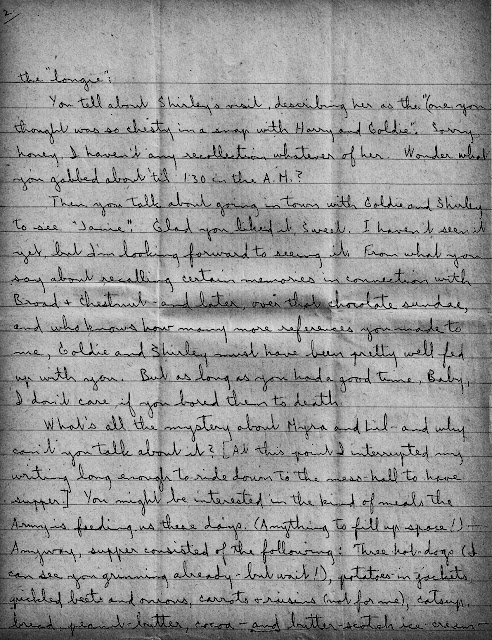 2
the "longie":
You tell about Shirley's visit, describing her as the "(one you
thought was so chesty in a snap with Harry and Goldie". Sorry
honey, I haven't any recollection whatever of her. Wonder what
you gabbed about 'til 1:30 in the A.M.?
Then you talk about going in town with Goldie and Shirley
to see "Janie". Glad you liked it Sweet. I haven't seen it
yet, but I'm looking forward to seeing it. From what you
say about recalling certain memories in connection with
Broad + Chestnut - and later, over that chocolate sundae,
and who knows how many more references you made to
me, Goldie and Shirley must have been pretty well fed
up with you. But as long as you had a good time, Baby,
I don't care if you bored them to death.
What's all the mystery about Myra and Lil - and why
can't you talk about it? [At this point I interrupted my
writing long enough to ride down to the mess-hall to have
supper] You might be interested in the kind of meals the
Army is feeding us these days. (Anything to fill up space!) -
Anyway, supper consisted of the following: Three hot-dogs (I
can see you grinning already - but wait!), potatoes in jackets,
pickled beets and onions, carrots + raisins (not for me), catsup,
bread, peanut-butter, cocoa - and butter-scotch ice-cream -